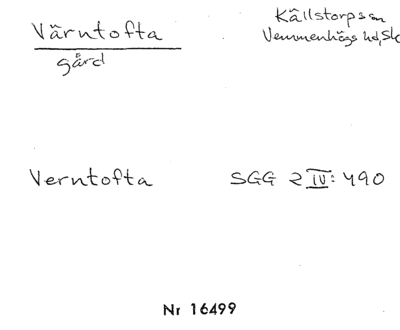 Värntofta
Källstorps sn
Vemmenhögs hd, Sk
gård
Verntofta SGG 2 IV: 490
Nr 16499